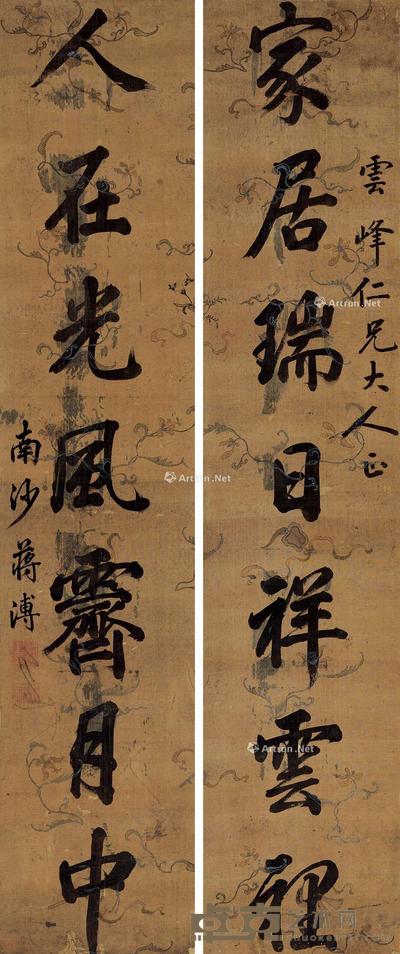 雲峰仁兄大人正
家居瑞日祥雲裡
人在光風霽月中
南沙蒋溥
Artron.Net
Artron.Net
Artron.Net
Artron.Net